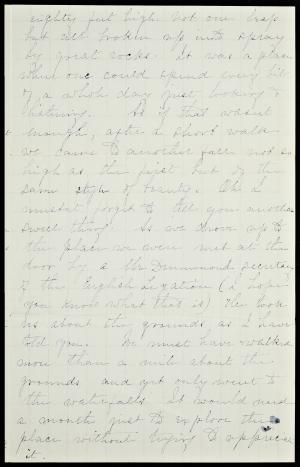 eighty feet high not one leap
but all broken up into spray
by great rocks. It was a place
where one could spend every bit
of a whole day just looking &
listening. As if that wasn't
enough, after a short walk
we came to another fall not so
high as the first but of the
same style of beauty. Oh I
mustnt forget to tell you another
sweet thing. As we drove up to
the place we were met at the
door by a Mr Drummond, secretary
of the English Legation (I hope
you know what that is) He took
us about the grounds as I have
told you. We must have walked
more than a mile about the
grounds and yet only went to
the waterfalls. It would need
a month just to explore the
place without trying to appreciate
it.